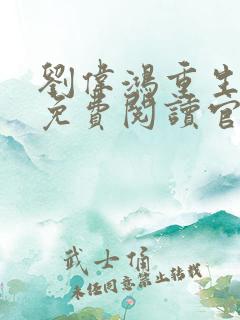 劉偉鴻重生
免費閱讀官
武士俑
未經同意禁止轉載